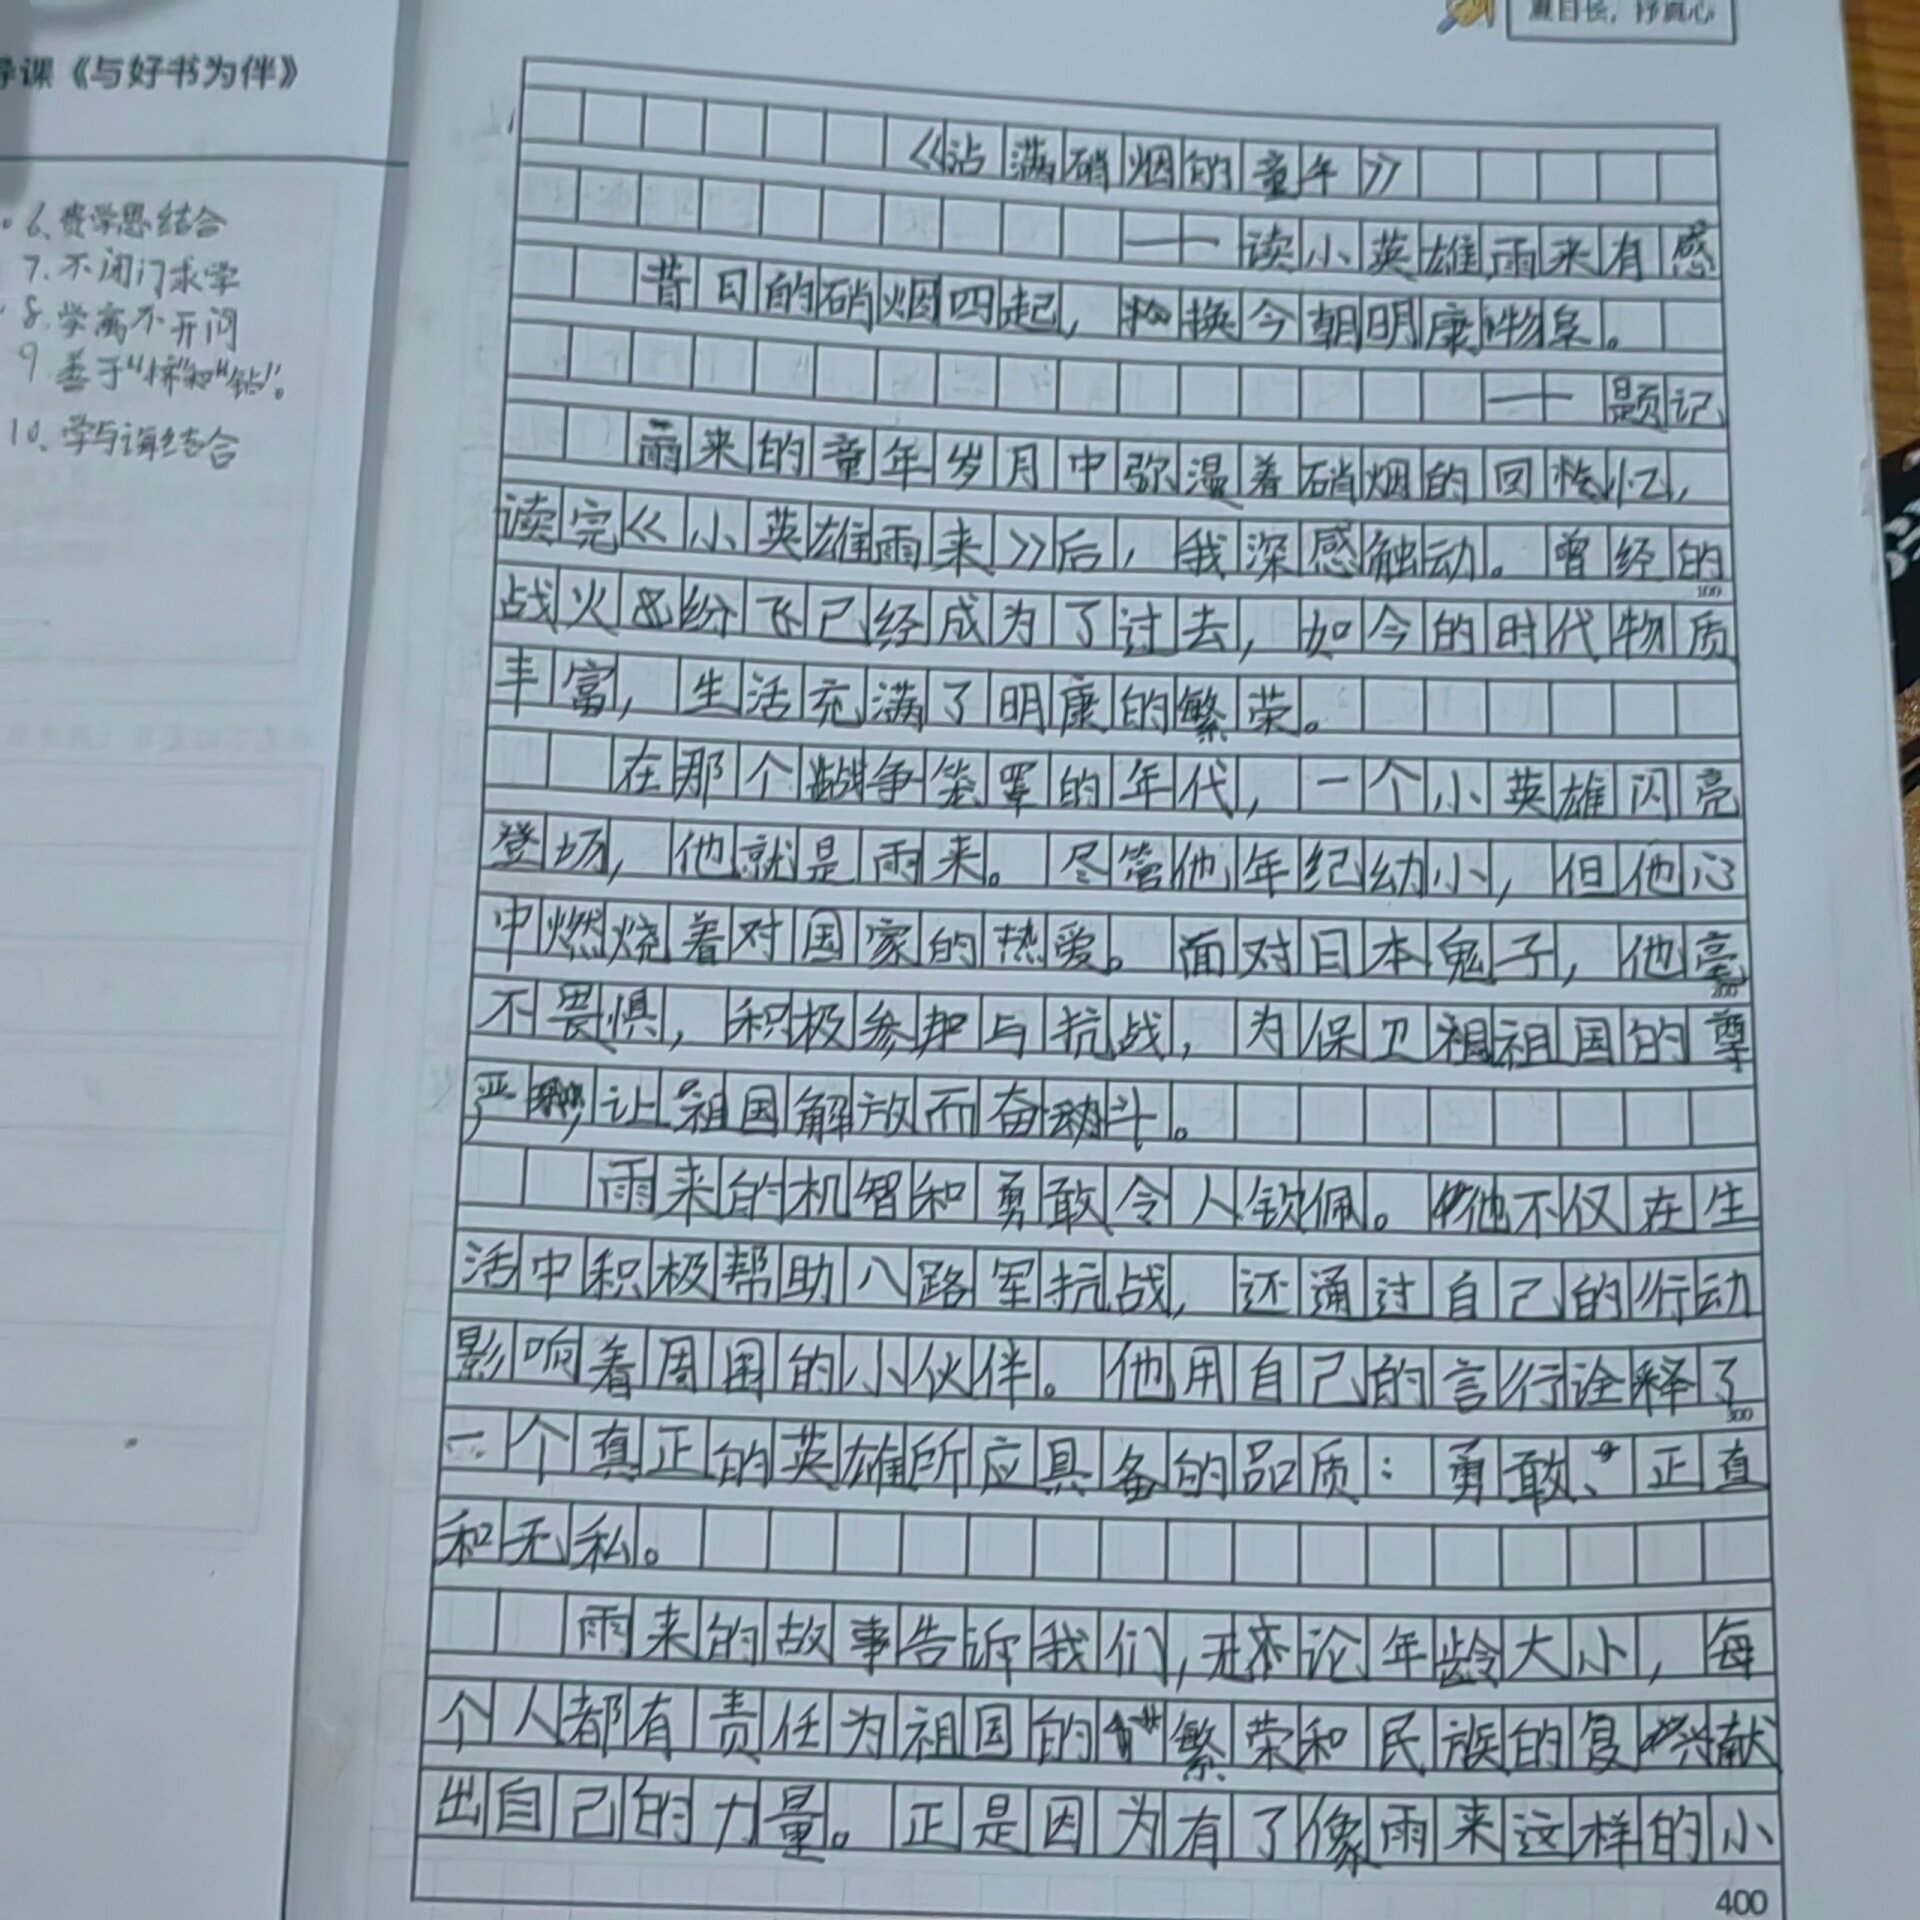 导课《与好书为伴》
6、费学思结合
7、不闭门求学
8、学离不开问
9、善于"挤"和"钻"。
10、学与诲结合
夏日长，抒真心
《沾满硝烟的童年》
——读小英雄雨来有感
昔日的硝烟四起，换今朝明康物阜。
——题记
雨来的童年岁月中弥漫着硝烟的回忆，
读完《小英雄雨来》后，我深感触动。曾经的
100
战火纷飞已经成为了过去，如今的时代物质
丰富，生活充满了明康的繁荣。
在那个战争笼罩的年代，一个小英雄闪亮
登场，他就是雨来。尽管他年纪幼小，但他心
中燃烧着对国家的热爱。面对日本鬼子，他毫
200
不畏惧，积极参与抗战，为保卫祖国的尊
严，让祖国解放而奋斗。
雨来的机智和勇敢令人钦佩。他不仅在生
活中积极帮助八路军抗战，还通过自己的行动
影响着周围的小伙伴。他用自己的言行诠释了
300
一个真正的英雄所应具备的品质：勇敢、正直
和无私。
雨来的故事告诉我们，无论年龄大小，每
个人都有责任为祖国的繁荣和民族的复兴献
出自己的力量。正是因为有了像雨来这样的小
400